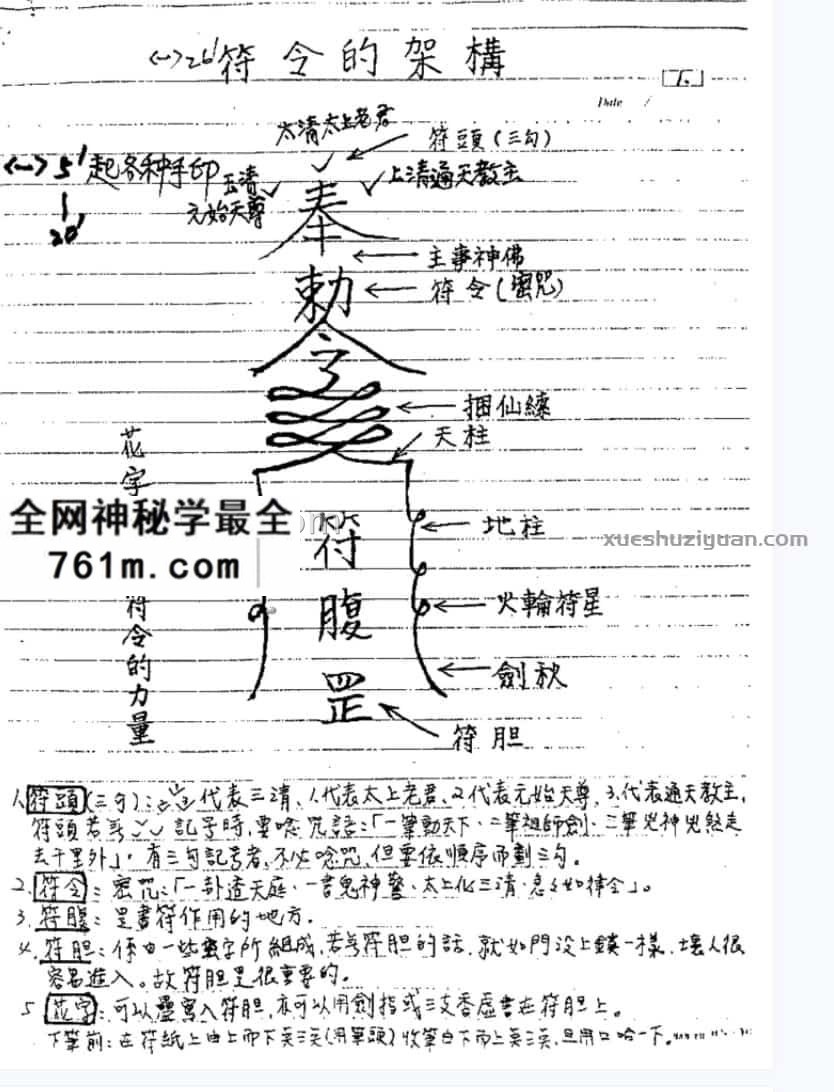 符令的架構
Date /
太清太上老君
符頭(三勾)
起各种手印
玉清
元始天尊
上清通天教主
5'
20'
奉
主事神佛
勅
符令(密咒)
令
捆仙繩
天柱
花字
符令的力量
全网神秘学最全
761m.com
xueshuziyuan.com
符
腹
罡
地柱
火輪符星
劍秋
符胆
1.符頭(三勾):代表三清、1.代表太上老君、2.代表元始天尊、3.代表通天教主,
符頭若 記号時,要唸咒語:「一筆動天下、二筆祖師劍、三筆兇神兇煞走
去千里外」,有三勾記号者,不必唸咒,但要依順序而劃三勾。
2.符令:密咒:「一 透天庭、一書鬼神驚、太上化三清、急急如律令」。
3.符腹:是書符作用的地方。
4.符胆:係由一些 字所組成,若無符胆的話,就如門沒上鎖一樣,壞人很
容易進入。故符胆是很重要的。
5 花字:可以疊寫入符胆,亦可以用劍指或三支香虛書在符胆上。
下筆前:在符紙上由上而下 三 (用筆頭)收筆由下而上 三 ,且用口哈一下。